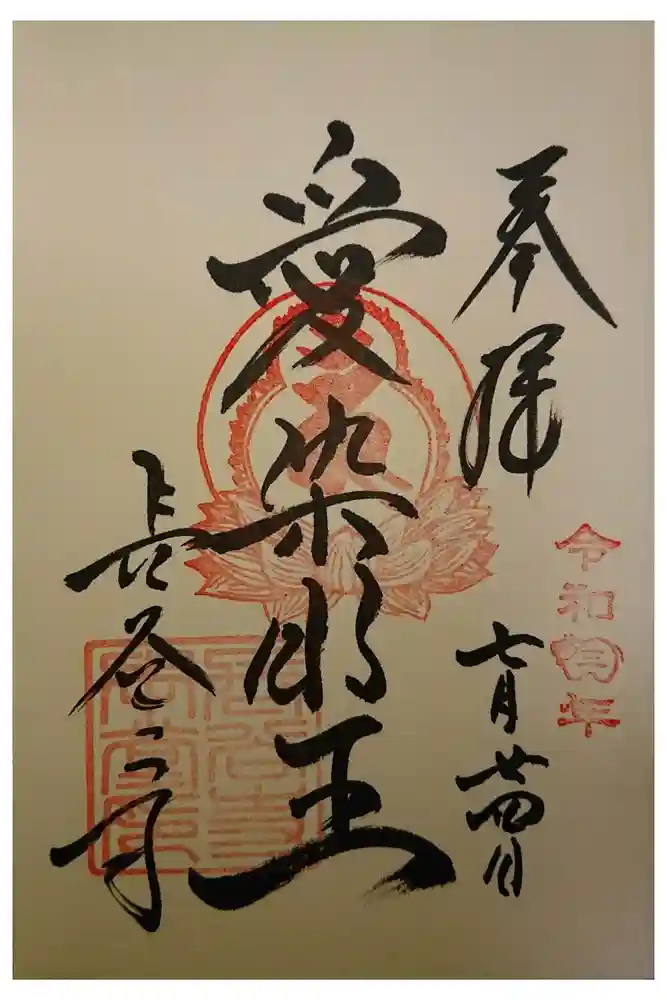 奉拝
令和年
七月廿四日
愛染明王
長谷寺